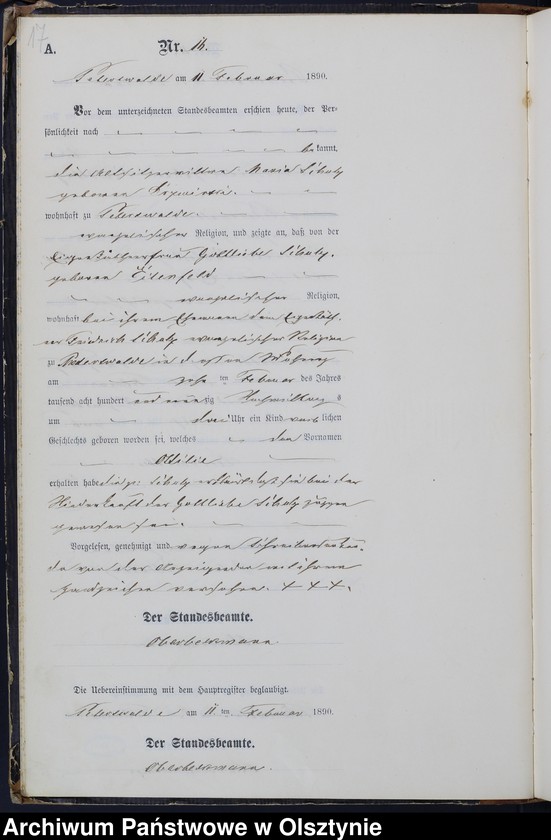 17
A. Nr. 16.
am 11 Februar 1890.
Vor dem unterzeichneten Standesbeamten erschien heute, der Per=
sönlichkeit nach
be kannt,
die Altsitzerwittwe Maria Schulz
geborene
wohnhaft zu
evangelischer Religion, und zeigte an, daß von der
Eigenkäthnerfrau Gottliebe Schulz,
geborene
evangelischer Religion,
wohnhaft bei ihrem Ehemann dem Eigenkäth=
ner Friedrich Schulz evangelischer Religion
zu in dessen Wohnung
am ten Februar des Jahres
tausend acht hundert und neunzig Nachmittags
um drei Uhr ein Kind weib lichen
Geschlechts geboren worden sei, welches den Vornamen
Ottilie
erhalten habe die p. Schulz erklärte daß sie bei der
Niederkunft der Gottliebe Schulz zugegen
gewesen sei.
Vorgelesen, genehmigt und wegen Schreibensunkun=
de von der Anzeigenden mit ihrem
Handzeichen versehen. + + +.
Der Standesbeamte.
Die Uebereinstimmung mit dem Hauptregister beglaubigt.
am 11 ten Februar 1890.
Der Standesbeamte.
Archiwum Państwowe w Olsztynie